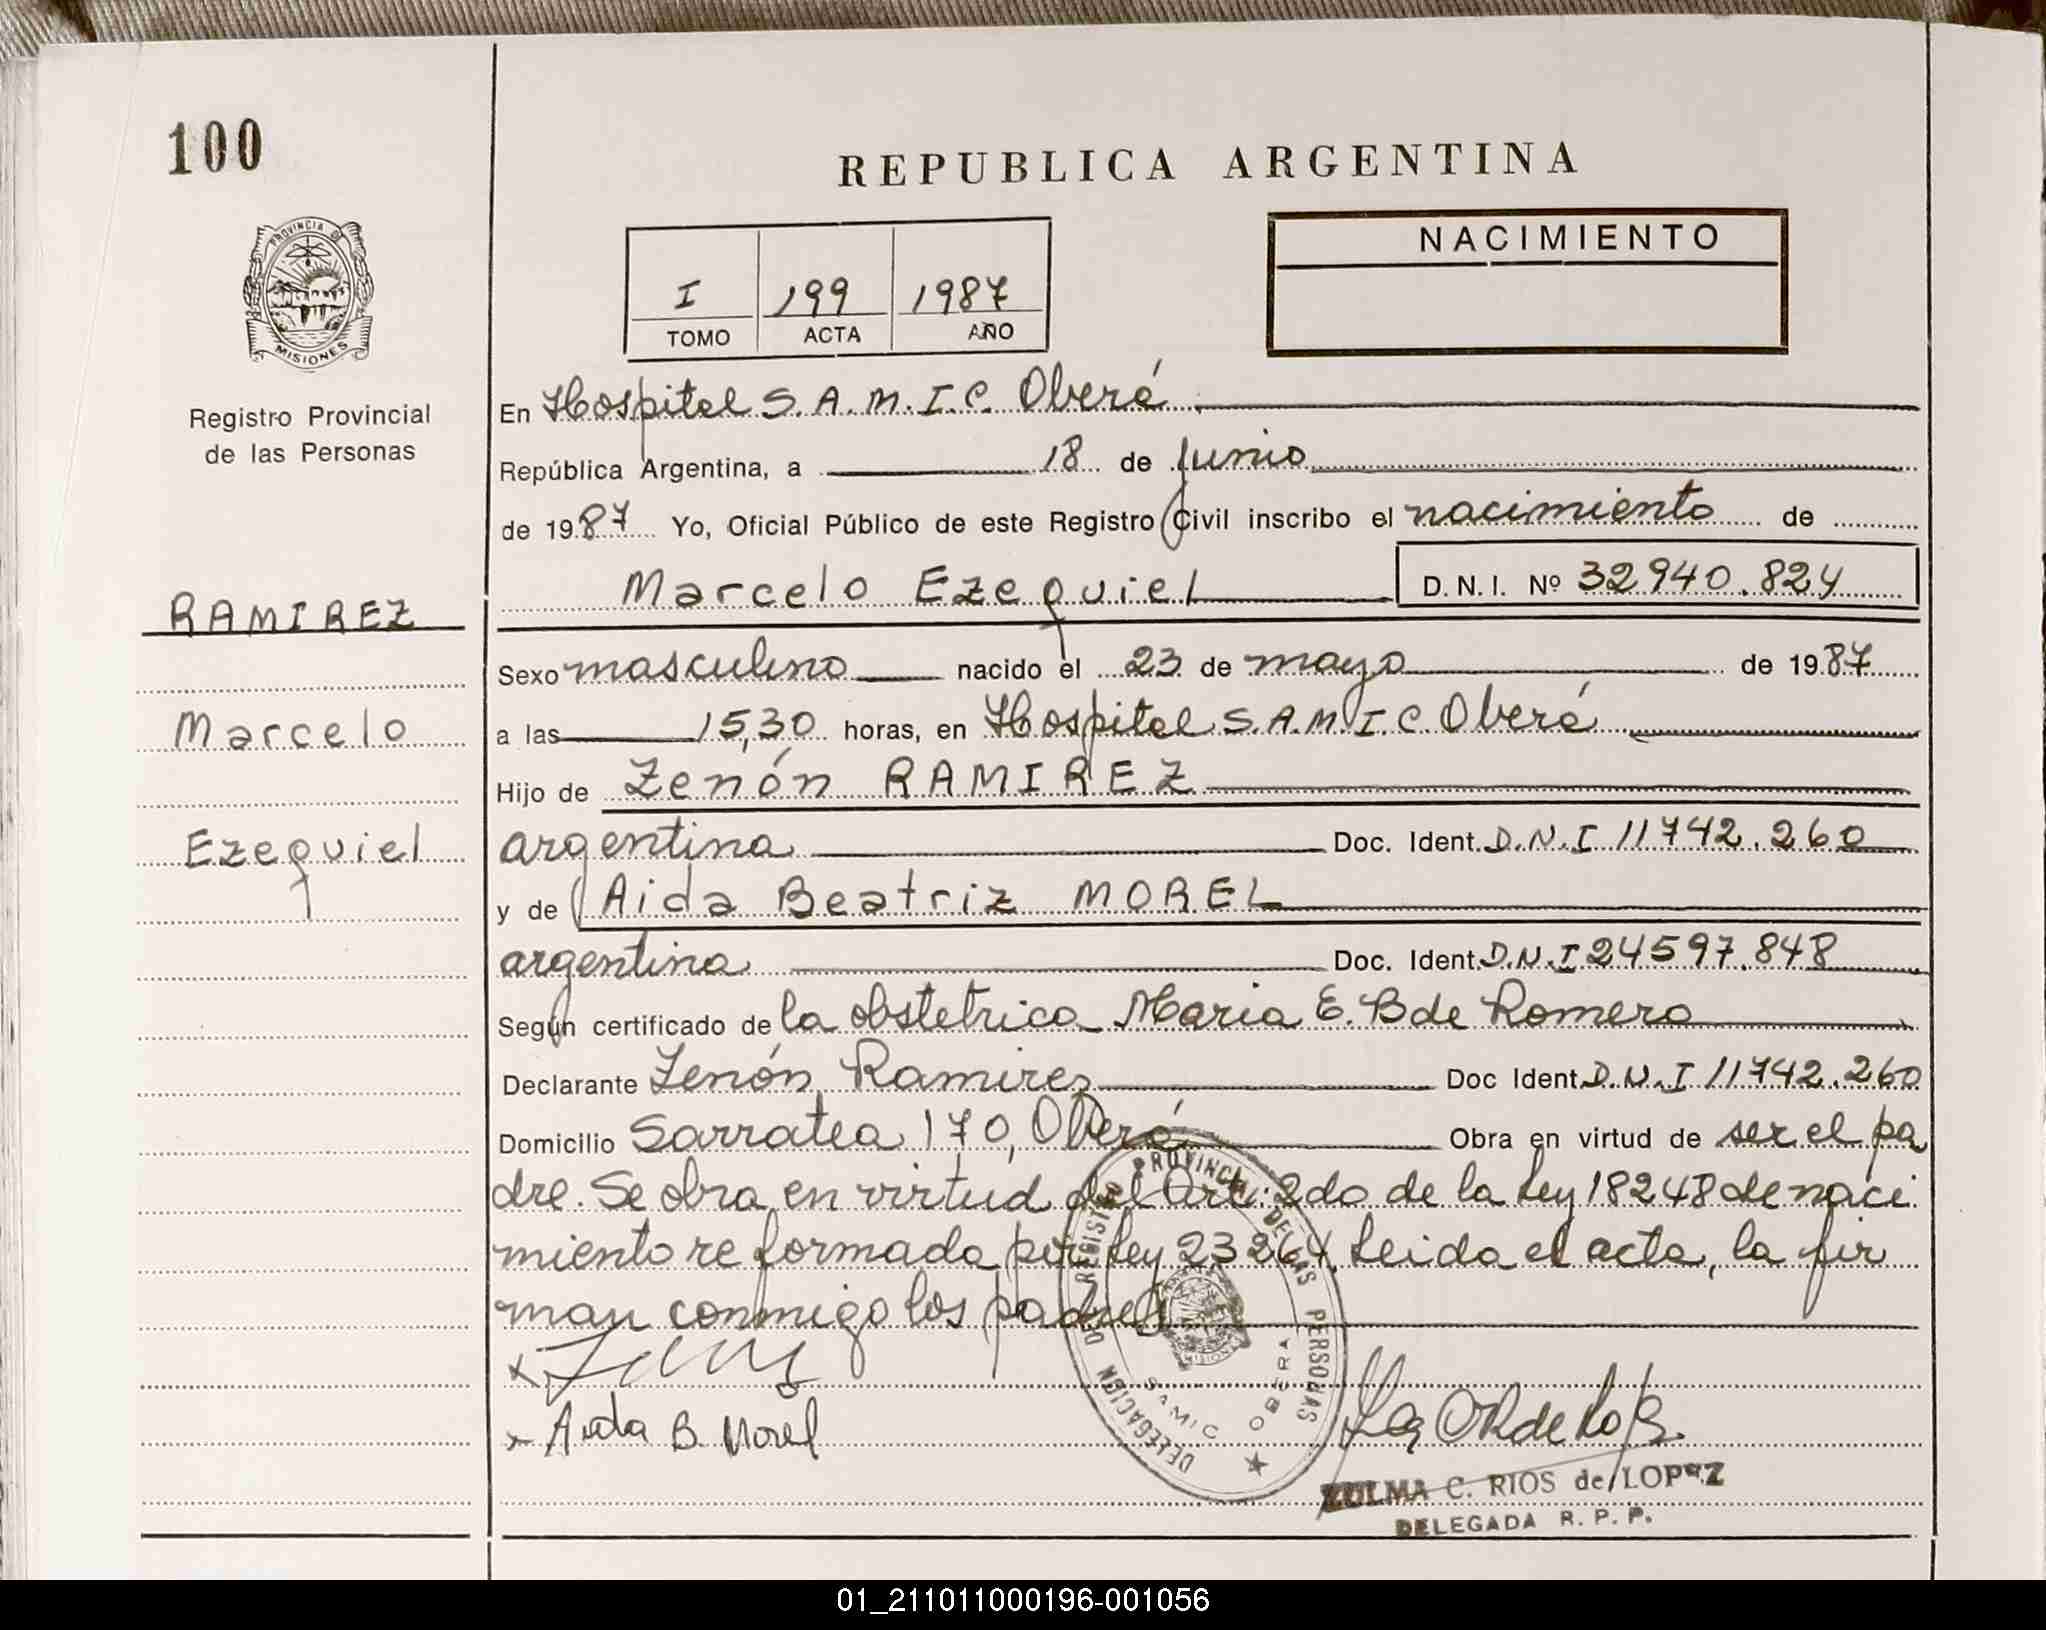 100
REPUBLICA ARGENTINA
PROVINCIA DE
MISIONES
NACIMIENTO
I 199 1987
TOMO ACTA AÑO
Registro Provincial
de las Personas
En Hospital S.A.M.I.C. Oberá
República Argentina, a 18 de Junio
de 1987 Yo, Oficial Público de este Registro Civil inscribo el nacimiento de
Marcelo Ezequiel D.N.I. Nº 32940.824
RAMIREZ
Marcelo
Ezequiel
Sexo masculino nacido el 23 de mayo de 1987
a las 15,30 horas, en Hospital S.A.M.I.C. Oberá
Hijo de Zenón RAMIREZ
argentina Doc. Ident. D.N.I 11742.260
y de Aida Beatriz MOREL
argentina Doc. Ident. D.N.I 24597.848
Según certificado de la obstetrica Maria E. B de Romero
Declarante Zenón Ramirez Doc Ident. D.N.I 11742.260
Domicilio Sarratea 170, Oberá Obra en virtud de ser el pa
dre. Se obra en virtud del Art: 2do de la Ley 18248 de naci
miento reformada por Ley 23264. Leida el acta, la fir
man conmigo los padres
x
x Aida B. Morel
DELEGACION DEL REGISTRO PROVINCIAL DE LAS PERSONAS
SAMIC OBERA
ZULMA C. RIOS de LOPEZ
DELEGADA R. P. P.
01_211011000196-001056